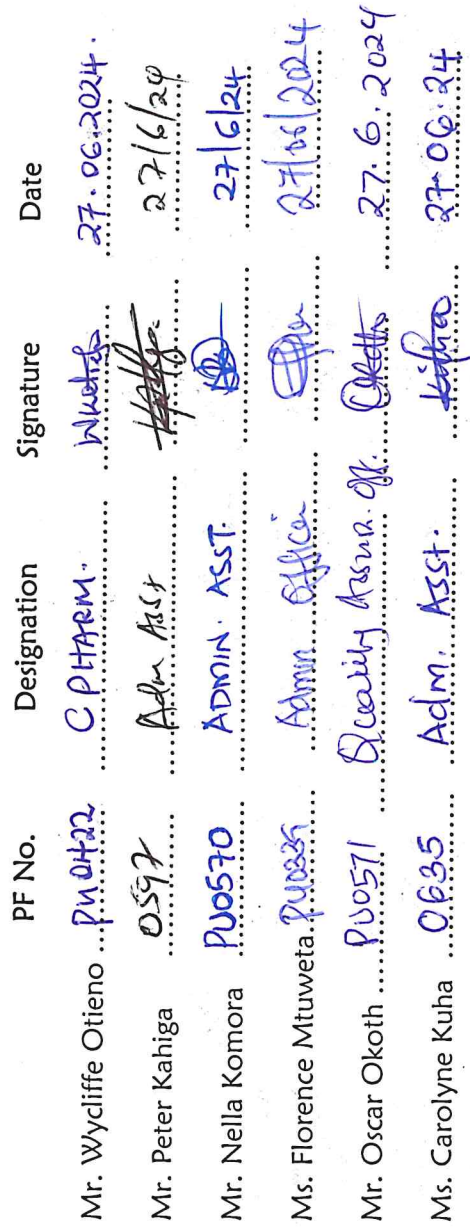 PF No. Designation Signature Date
Mr. Wycliffe Otieno PU0422 C PHARM. 27.06.2024.
Mr. Peter Kahiga 0597 Adm Asst 27/6/24
Mr. Nella Komora PU0570 ADMIN. ASST. 27/6/24
Ms. Florence Mtuweta Admin Officer 27/06/2024
Mr. Oscar Okoth PU0571 Quality Assur. Off. Okoth 27.6.2024
Ms. Carolyne Kuha 0635 Adm. Asst. 27.06.24